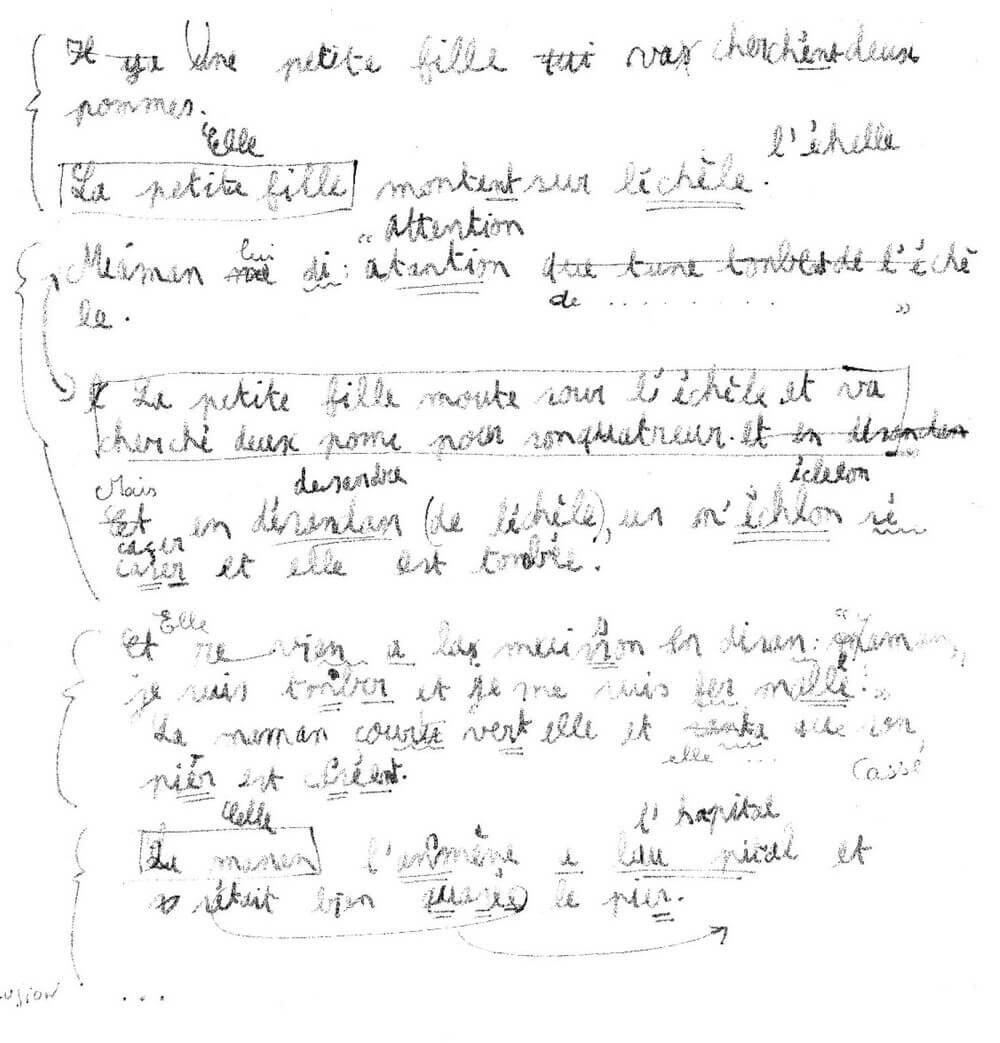 Il y a Une petite fille qui vas cherchent deux
pommes.
Elle
l'échelle
La petite fille montent sur léchèle.
attention
lui
Máman me di : atantion que tune tonbes de l'éché
de ........ "
le.
La petite fille monte sour l'échèle et va
cherché deux pome pour sonquatreur. et en désendan
Mais
desandre
échelon
Et en désendan (de léchèle), un n'échlon sé
casser
caser et elle est tombée.
Elle
Et re vien a las maison en disan : "Maman,
je suis tonber et je me suis fer mallé."
La maman courte vert elle et
elle ...
cassé
pier est
Elle
l'hapital
La maman l'enmène a lau pital et
s'était bien le pier.
...